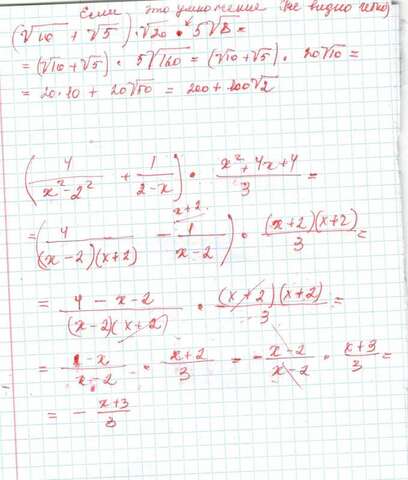 Если это умножение (не видно четко)
(√10 + √5) · √20 · 5√8 =
= (√10 + √5) · 5√160 = (√10 + √5) · 20√10 =
= 20·10 + 20√50 = 200 + 100√2
(4/(x² - 2²) + 1/(2-x)) · (x² + 4x + 4)/3 =
= (4/((x-2)(x+2)) - 1/(x-2)) · ((x+2)(x+2))/3 =
x+2
= (4 - x - 2)/((x-2)(x+2)) · ((x+2)(x+2))/3 =
= -x/(x-2) · (x+2)/3 = - (x-2)/(x-2) · (x+3)/3 =
= - (x+3)/3